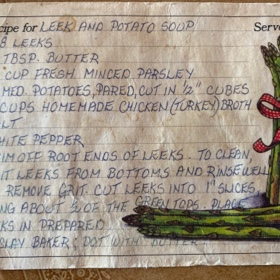 cipe for LEEK AND POTATO SOUP Serve
8 LEEKS
TBSP. BUTTER
CUP FRESH MINCED PARSLEY
MED. POTATOES, PARED, CUT IN ½" CUBES
CUPS HOMEMADE CHICKEN (TURKEY) BROTH
LT
HITE PEPPER
IM OFF ROOT ENDS OF LEEKS. TO CLEAN,
IT LEEKS FROM BOTTOMS AND RINSE WELL
REMOVE GRIT. CUT LEEKS INTO 1" SLICES,
NG ABOUT OF THE GREEN TOPS. PLACE
KS IN PREPARED
CLAY BAKER; DOT WITH BUTTER.